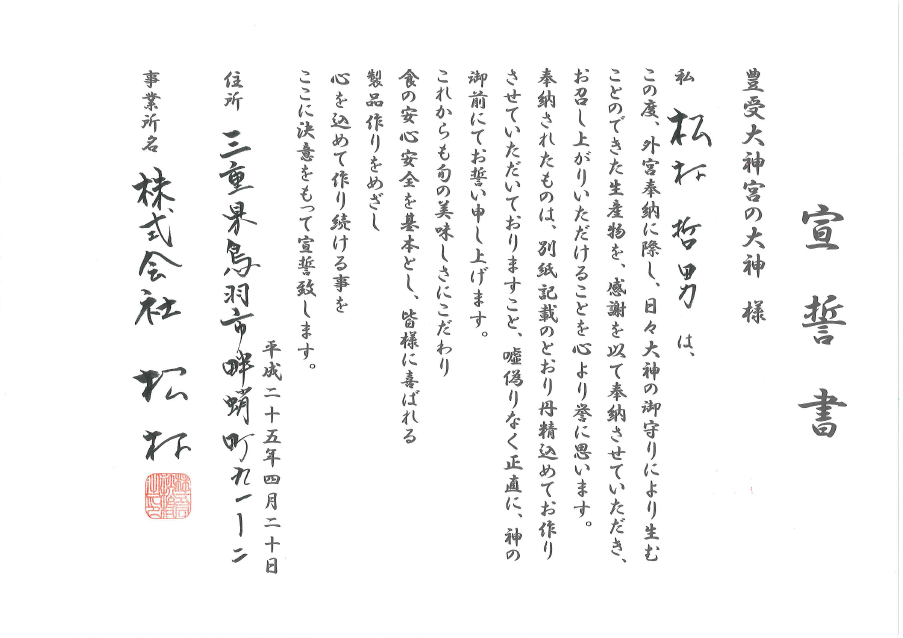 宣誓書
豊受大神宮の大神 様
私 松村 哲男 は、
この度、外宮奉納に際し、日々大神の御守りにより生む
ことのできた生産物を、感謝を以て奉納させていただき、
お召し上がりいただけることを心より誉に思います。
奉納されたものは、別紙記載のとおり丹精込めてお作り
させていただいておりますこと、嘘偽りなく正直に、神の
御前にてお誓い申し上げます。
これからも旬の美味しさにこだわり
食の安心安全を基本とし、皆様に喜ばれる
製品作りをめざし
心を込めて作り続ける事を
ここに決意をもって宣誓致します。
平成二十五年四月二十日
住所 三重県鳥羽市畔蛸町九一ー二
事業所名 株式会社 松村